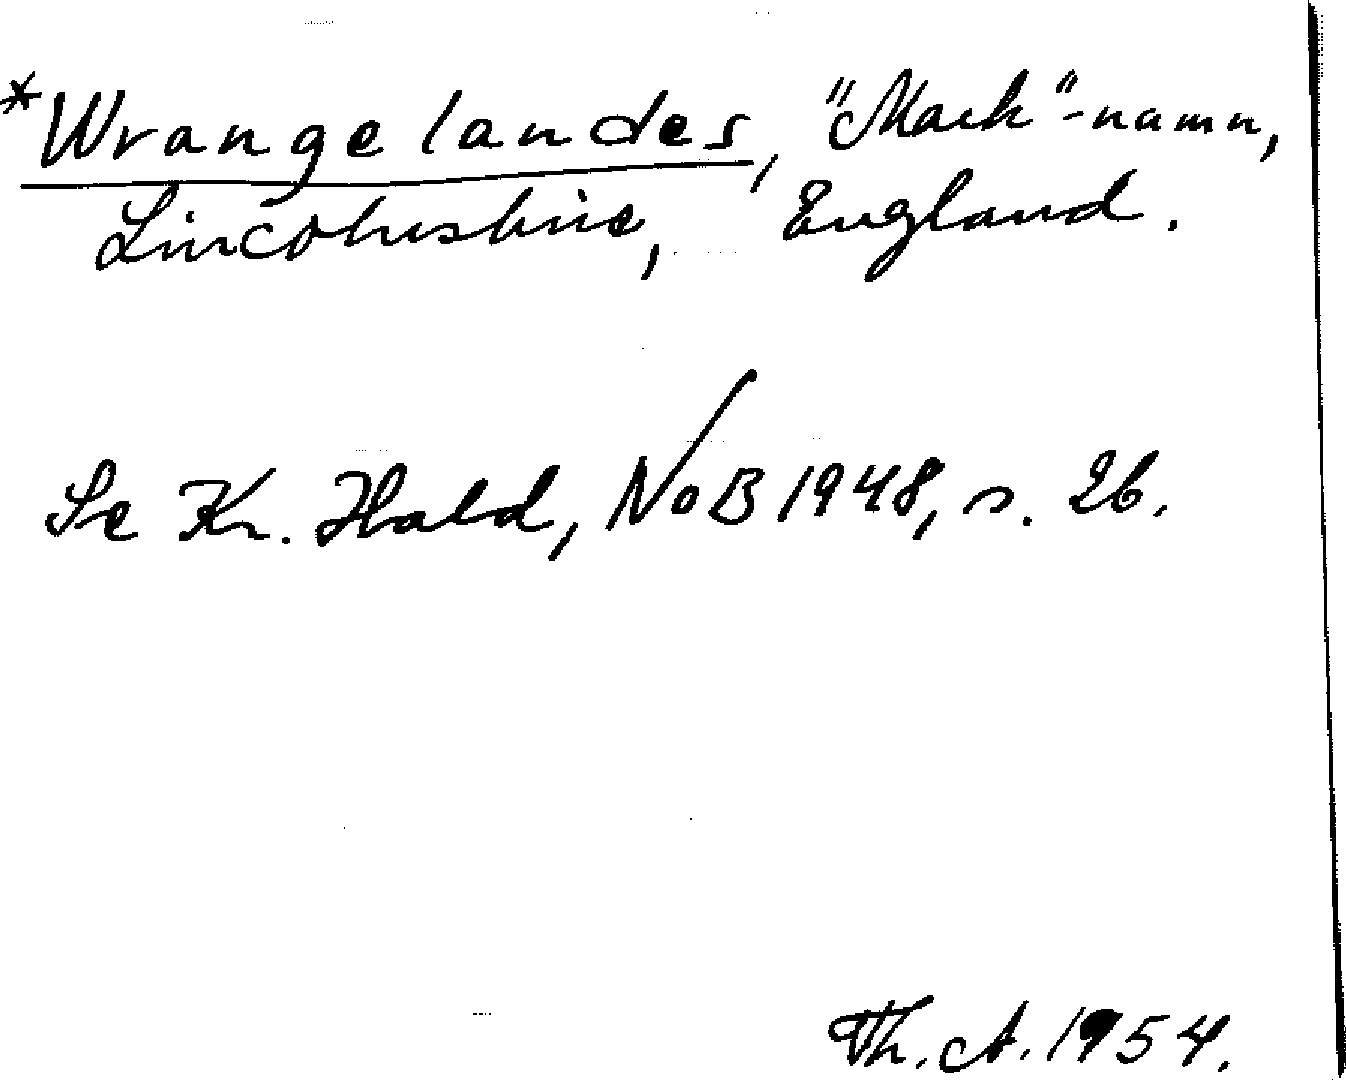 *Wrangelandes, "Mark"-namn,
Lincolnshire, England.
Se Kr. Hald, NoB 1948, s. 26.
Th. A. 1954.